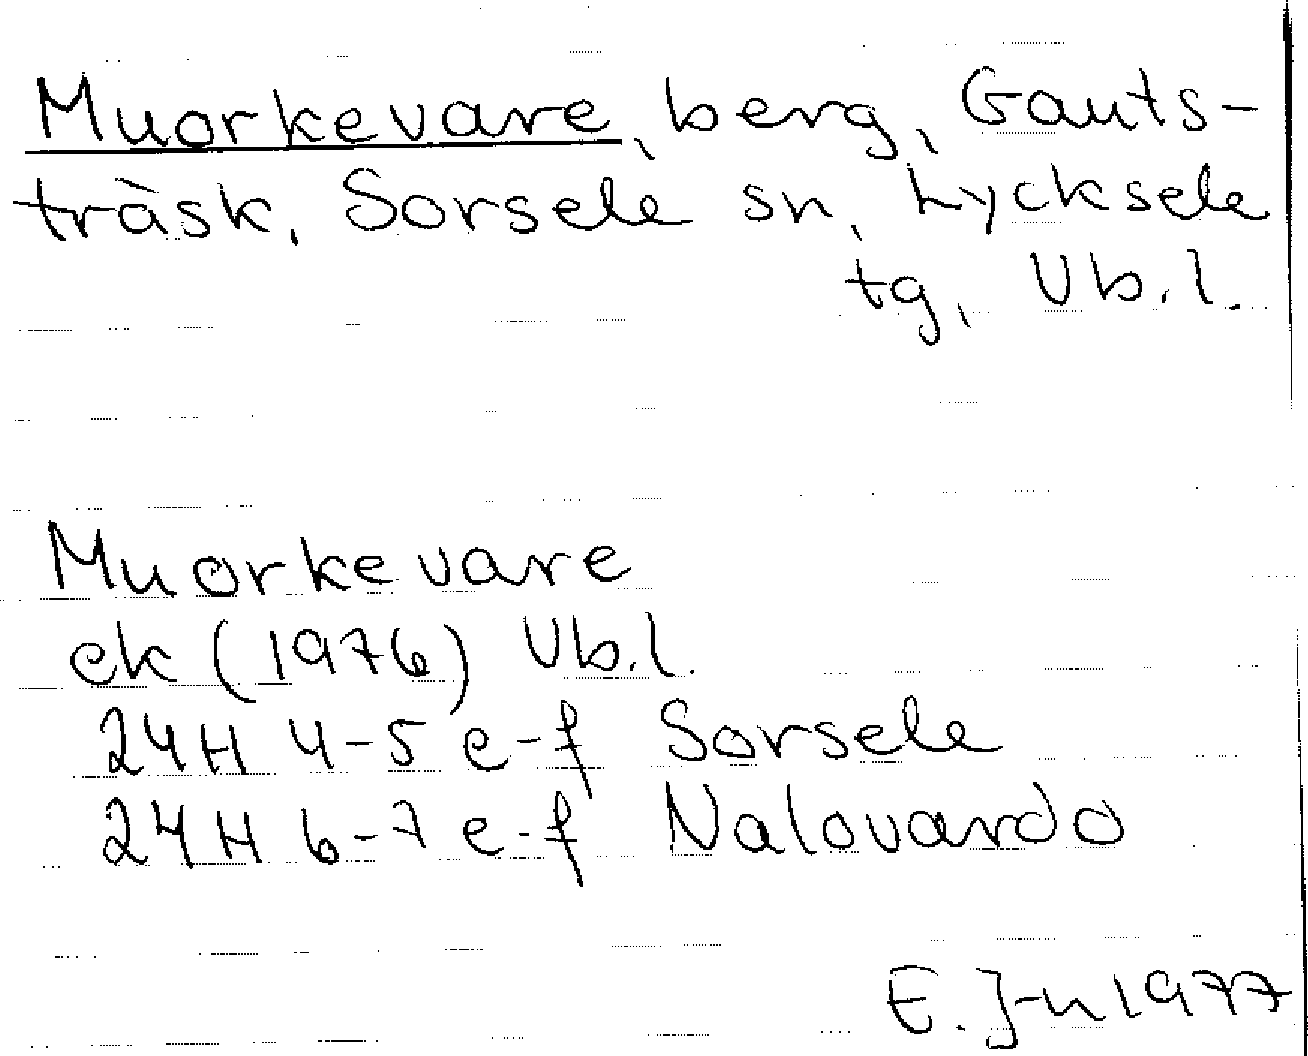 Muorkevare, berg, Gauts-
träsk, Sorsele sn, Lycksele
tg, Vb.l.
Muorkevare
ek (1976) Vb.l.
24H 4-5 e-f Sorsele
24H 6-7 e-f Nalovardo
E. J-n 1977